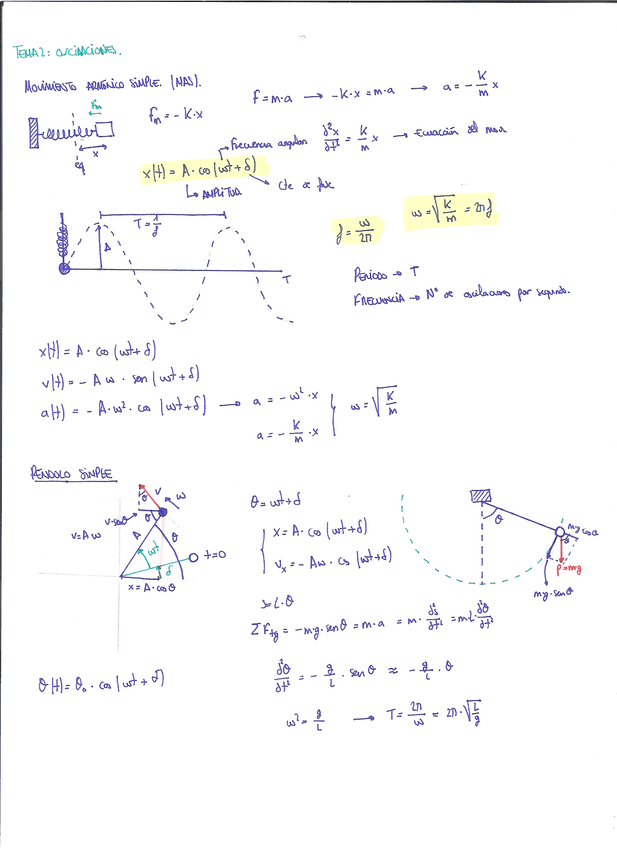 TEMA 2: OSCILACIONES.
MOVIMIENTO ARMÓNICO SIMPLE. (MAS).
F = m·a → -K·x = m·a → a = - K/m x
Fm
fm = -K·x
x
Frecuencia angular
d²x/dt² = k/m x → Ecuación del mov.
x(t) = A·cos(ωt+δ)
AMPLITUD
Cte de fase
T = 1/f
f = ω/2π
ω = √(K/m) = 2πf
A
T
PERIODO → T
FRECUENCIA → Nº de oscilaciones por segundo.
x(t) = A· cos (ωt+δ)
v(t) = - A ω · sen (ωt+δ)
a(t) = - A·ω² · cos (ωt+δ) → a = - ω²·x
a = - K/m ·x
ω = √(K/m)
PÉNDULO SIMPLE
θ v ω
v·senθ θ
v = A ω
A ωt θ
t=0
δ
x = A·cosθ
θ = ωt+δ
x = A·cos (ωt+δ)
vx = - Aω · cos (ωt+δ)
θ
mg cosθ
P=mg
mg·senθ
s = L·θ
ΣFtg = -m·g·senθ = m·a = m· d²s/dt² = m·L· d²θ/dt²
θ(t) = θ₀ · cos (ωt+δ)
d²θ/dt² = - g/L · senθ ≈ - g/L · θ
ω² = g/L → T = 2π/ω = 2π·√(L/g)